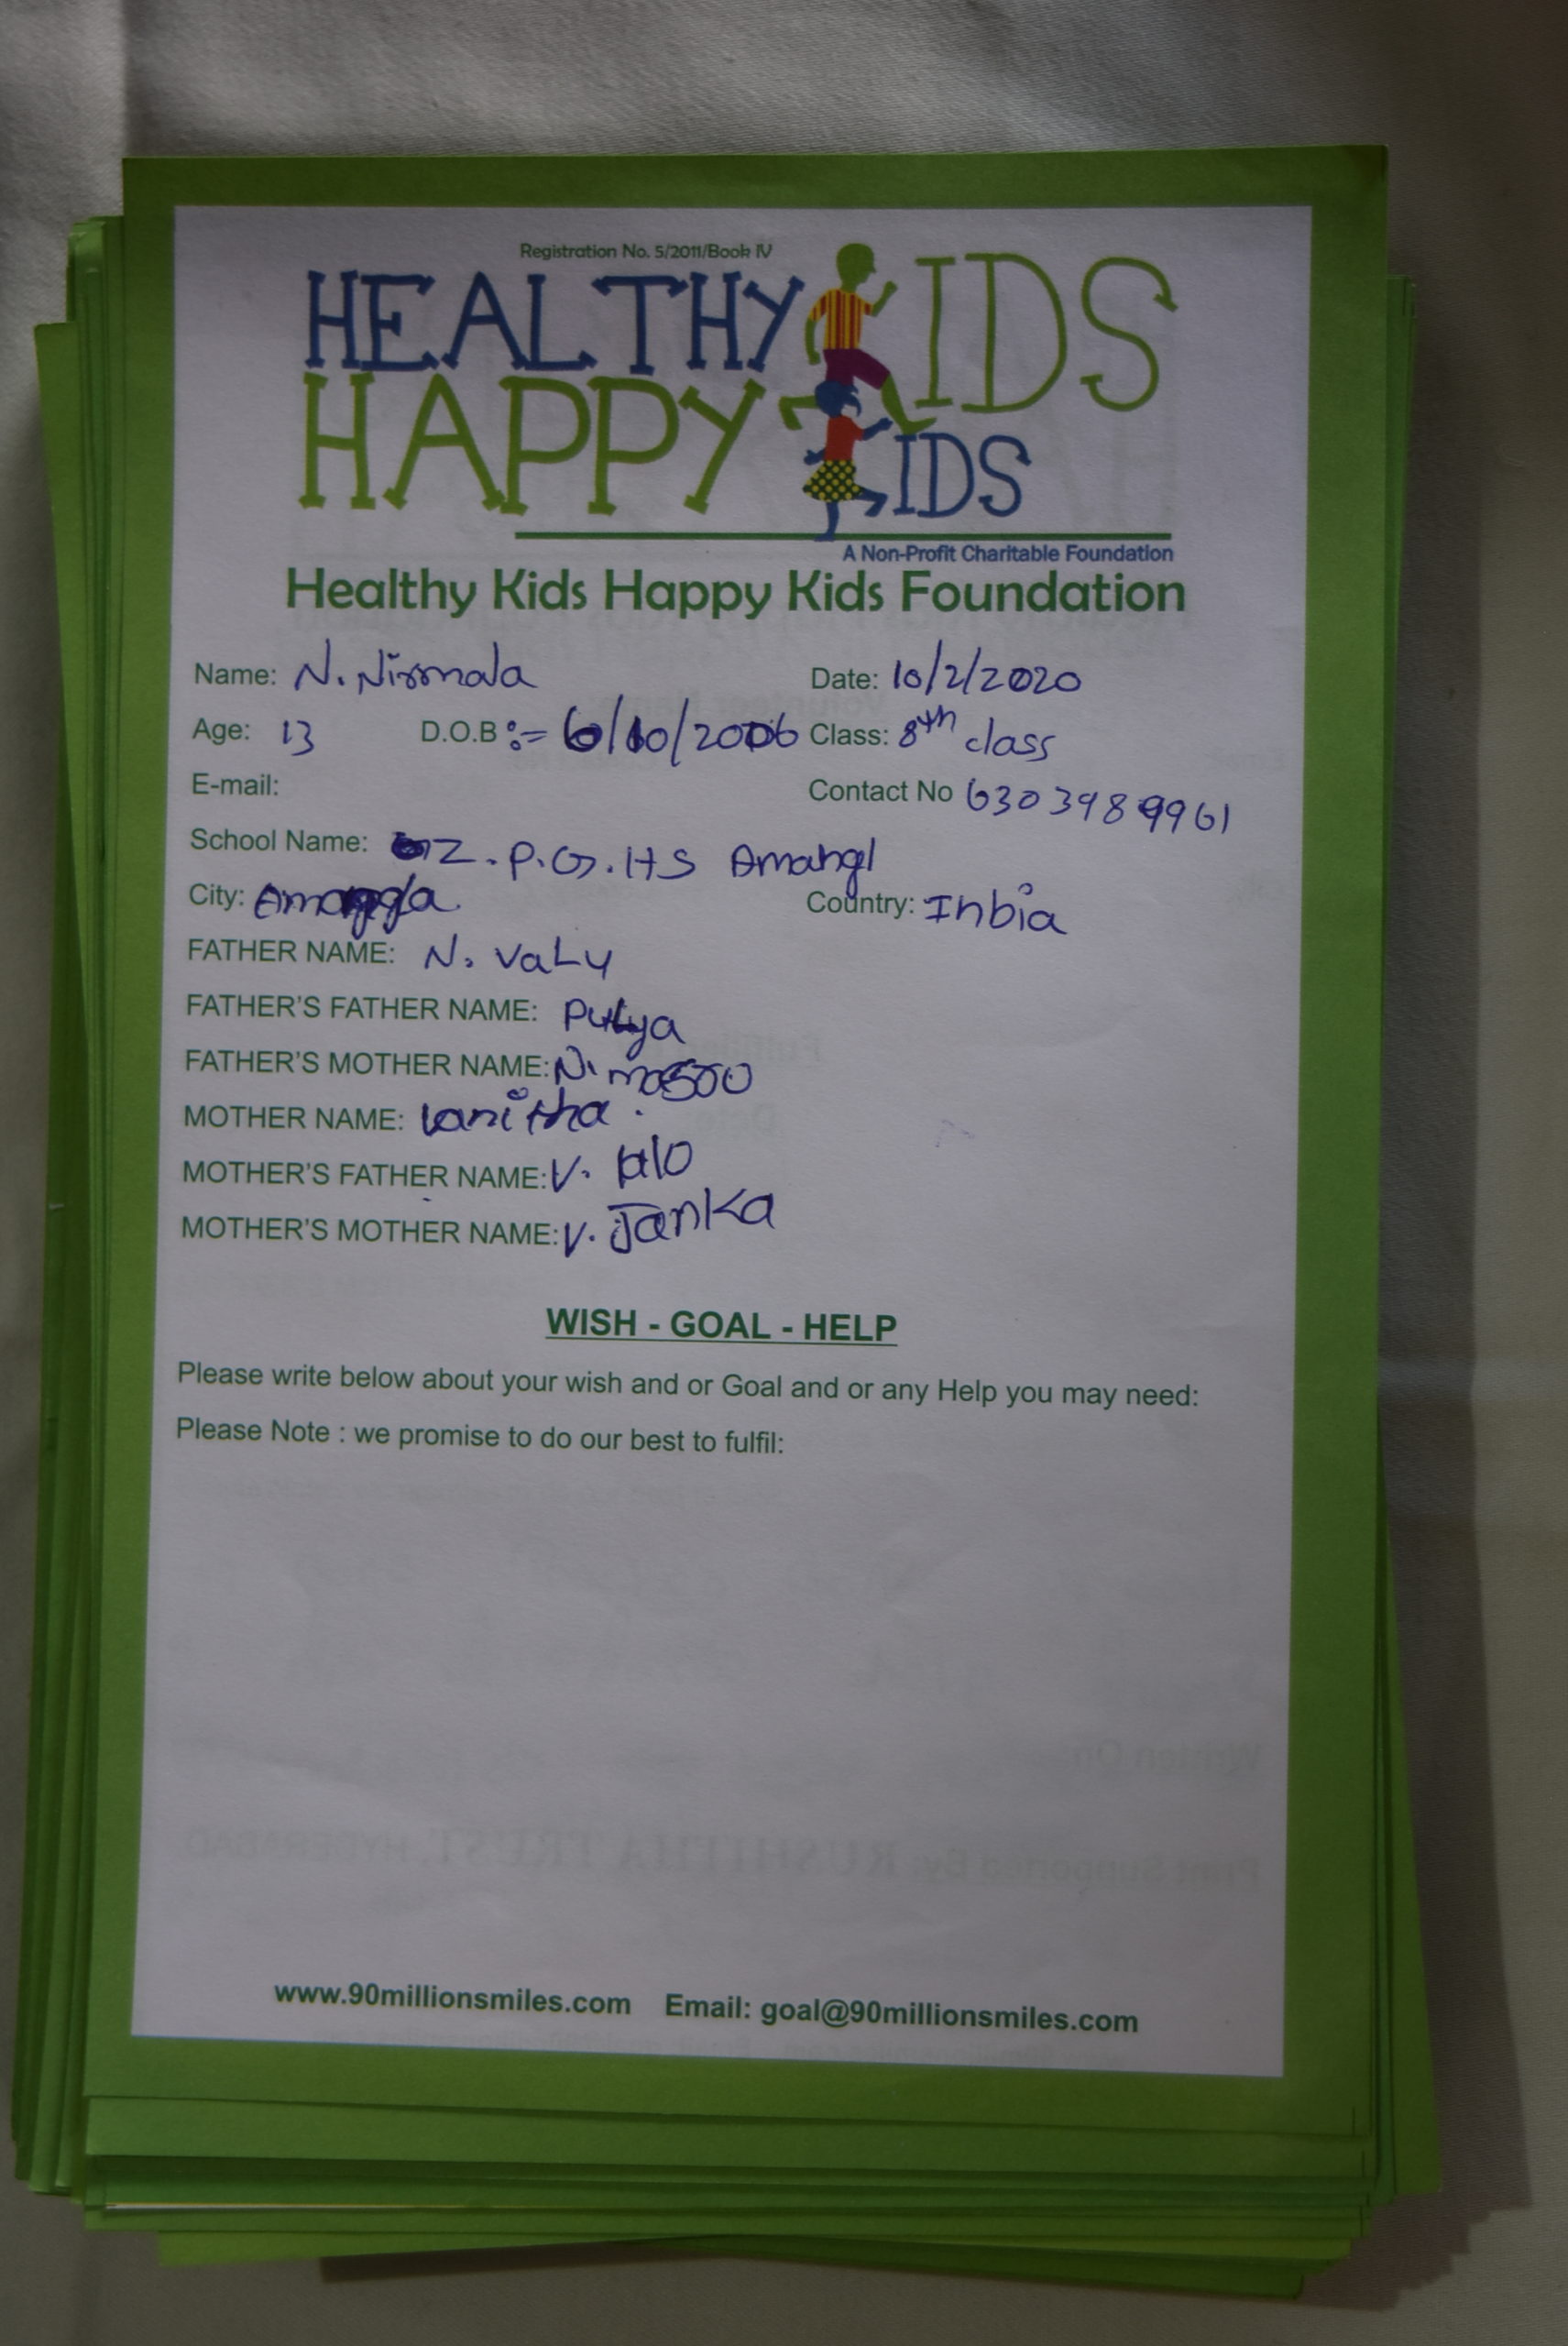 Registration No. 5/2011/Book IV
HEALTHY KIDS
HAPPY KIDS
A Non-Profit Charitable Foundation
Healthy Kids Happy Kids Foundation
Name: N. Nirmala Date: 10/2/2020
Age: 13 D.O.B :- 6/10/2006 Class: 8th class
E-mail: Contact No 6303989961
School Name: Z.P.G.HS Amangl
City: Country: Inbia
FATHER NAME: N. VaLy
FATHER'S FATHER NAME:
FATHER'S MOTHER NAME: N.
MOTHER NAME: Vanitha.
MOTHER'S FATHER NAME: V.
MOTHER'S MOTHER NAME: V. Janka
WISH - GOAL - HELP
Please write below about your wish and or Goal and or any Help you may need:
Please Note : we promise to do our best to fulfil:
www.90millionsmiles.com Email: goal@90millionsmiles.com